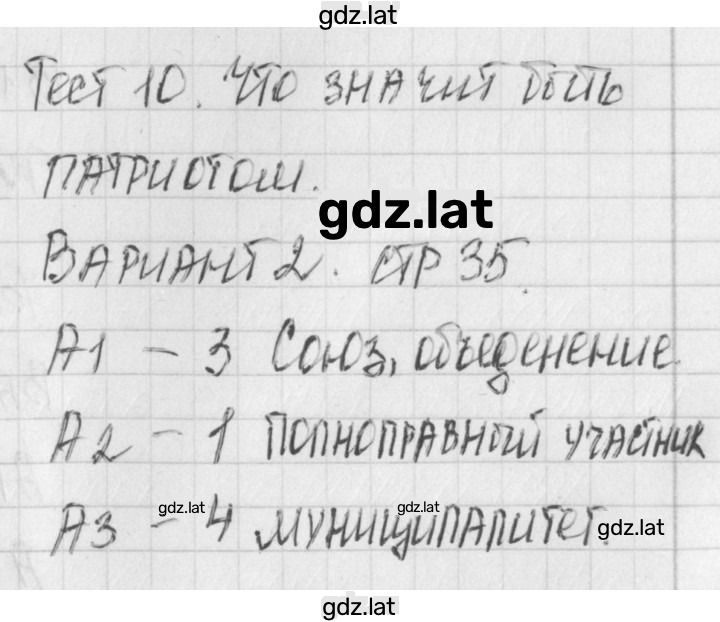 gdz.lat
Тест 10. Что значит быть
патриотом.
gdz.lat
Вариант 2. стр 35.
А1 – 3 Союз, объеденение.
А2 – 1 Полноправный участник
gdz.lat gdz.lat
А3 – 4 муниципалитет. gdz.lat
gdz.lat